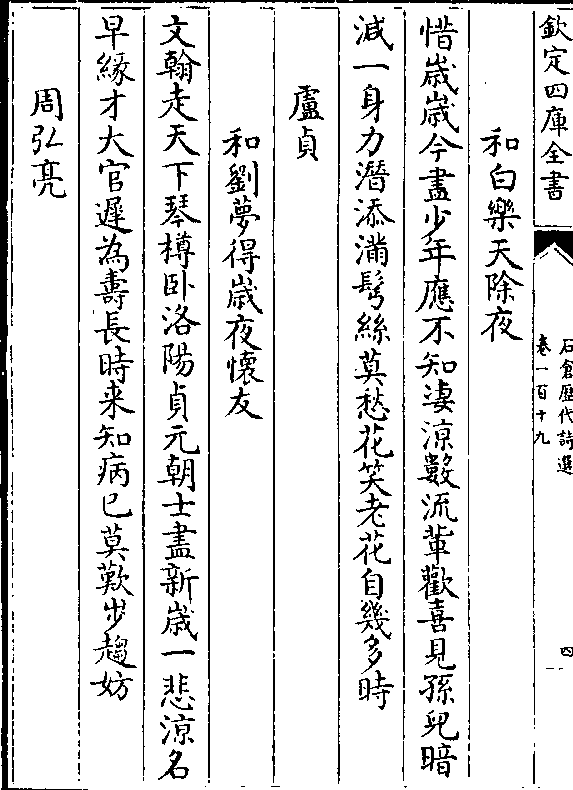 欽定四庫全書
石倉歷代詩選
卷一百十九
四
和白樂天除夜
惜歲歲今盡少年應不知淒涼數流輩歡喜見孫兒暗
減一身力潛添滿鬂絲莫愁花笑老花自幾多時
盧貞
和劉夢得歲夜懷友
文翰走天下琴樽臥洛陽貞元朝士盡新歲一悲涼名
早緣才大官遲為壽長時来知病已莫歎步趨妨
周弘亮